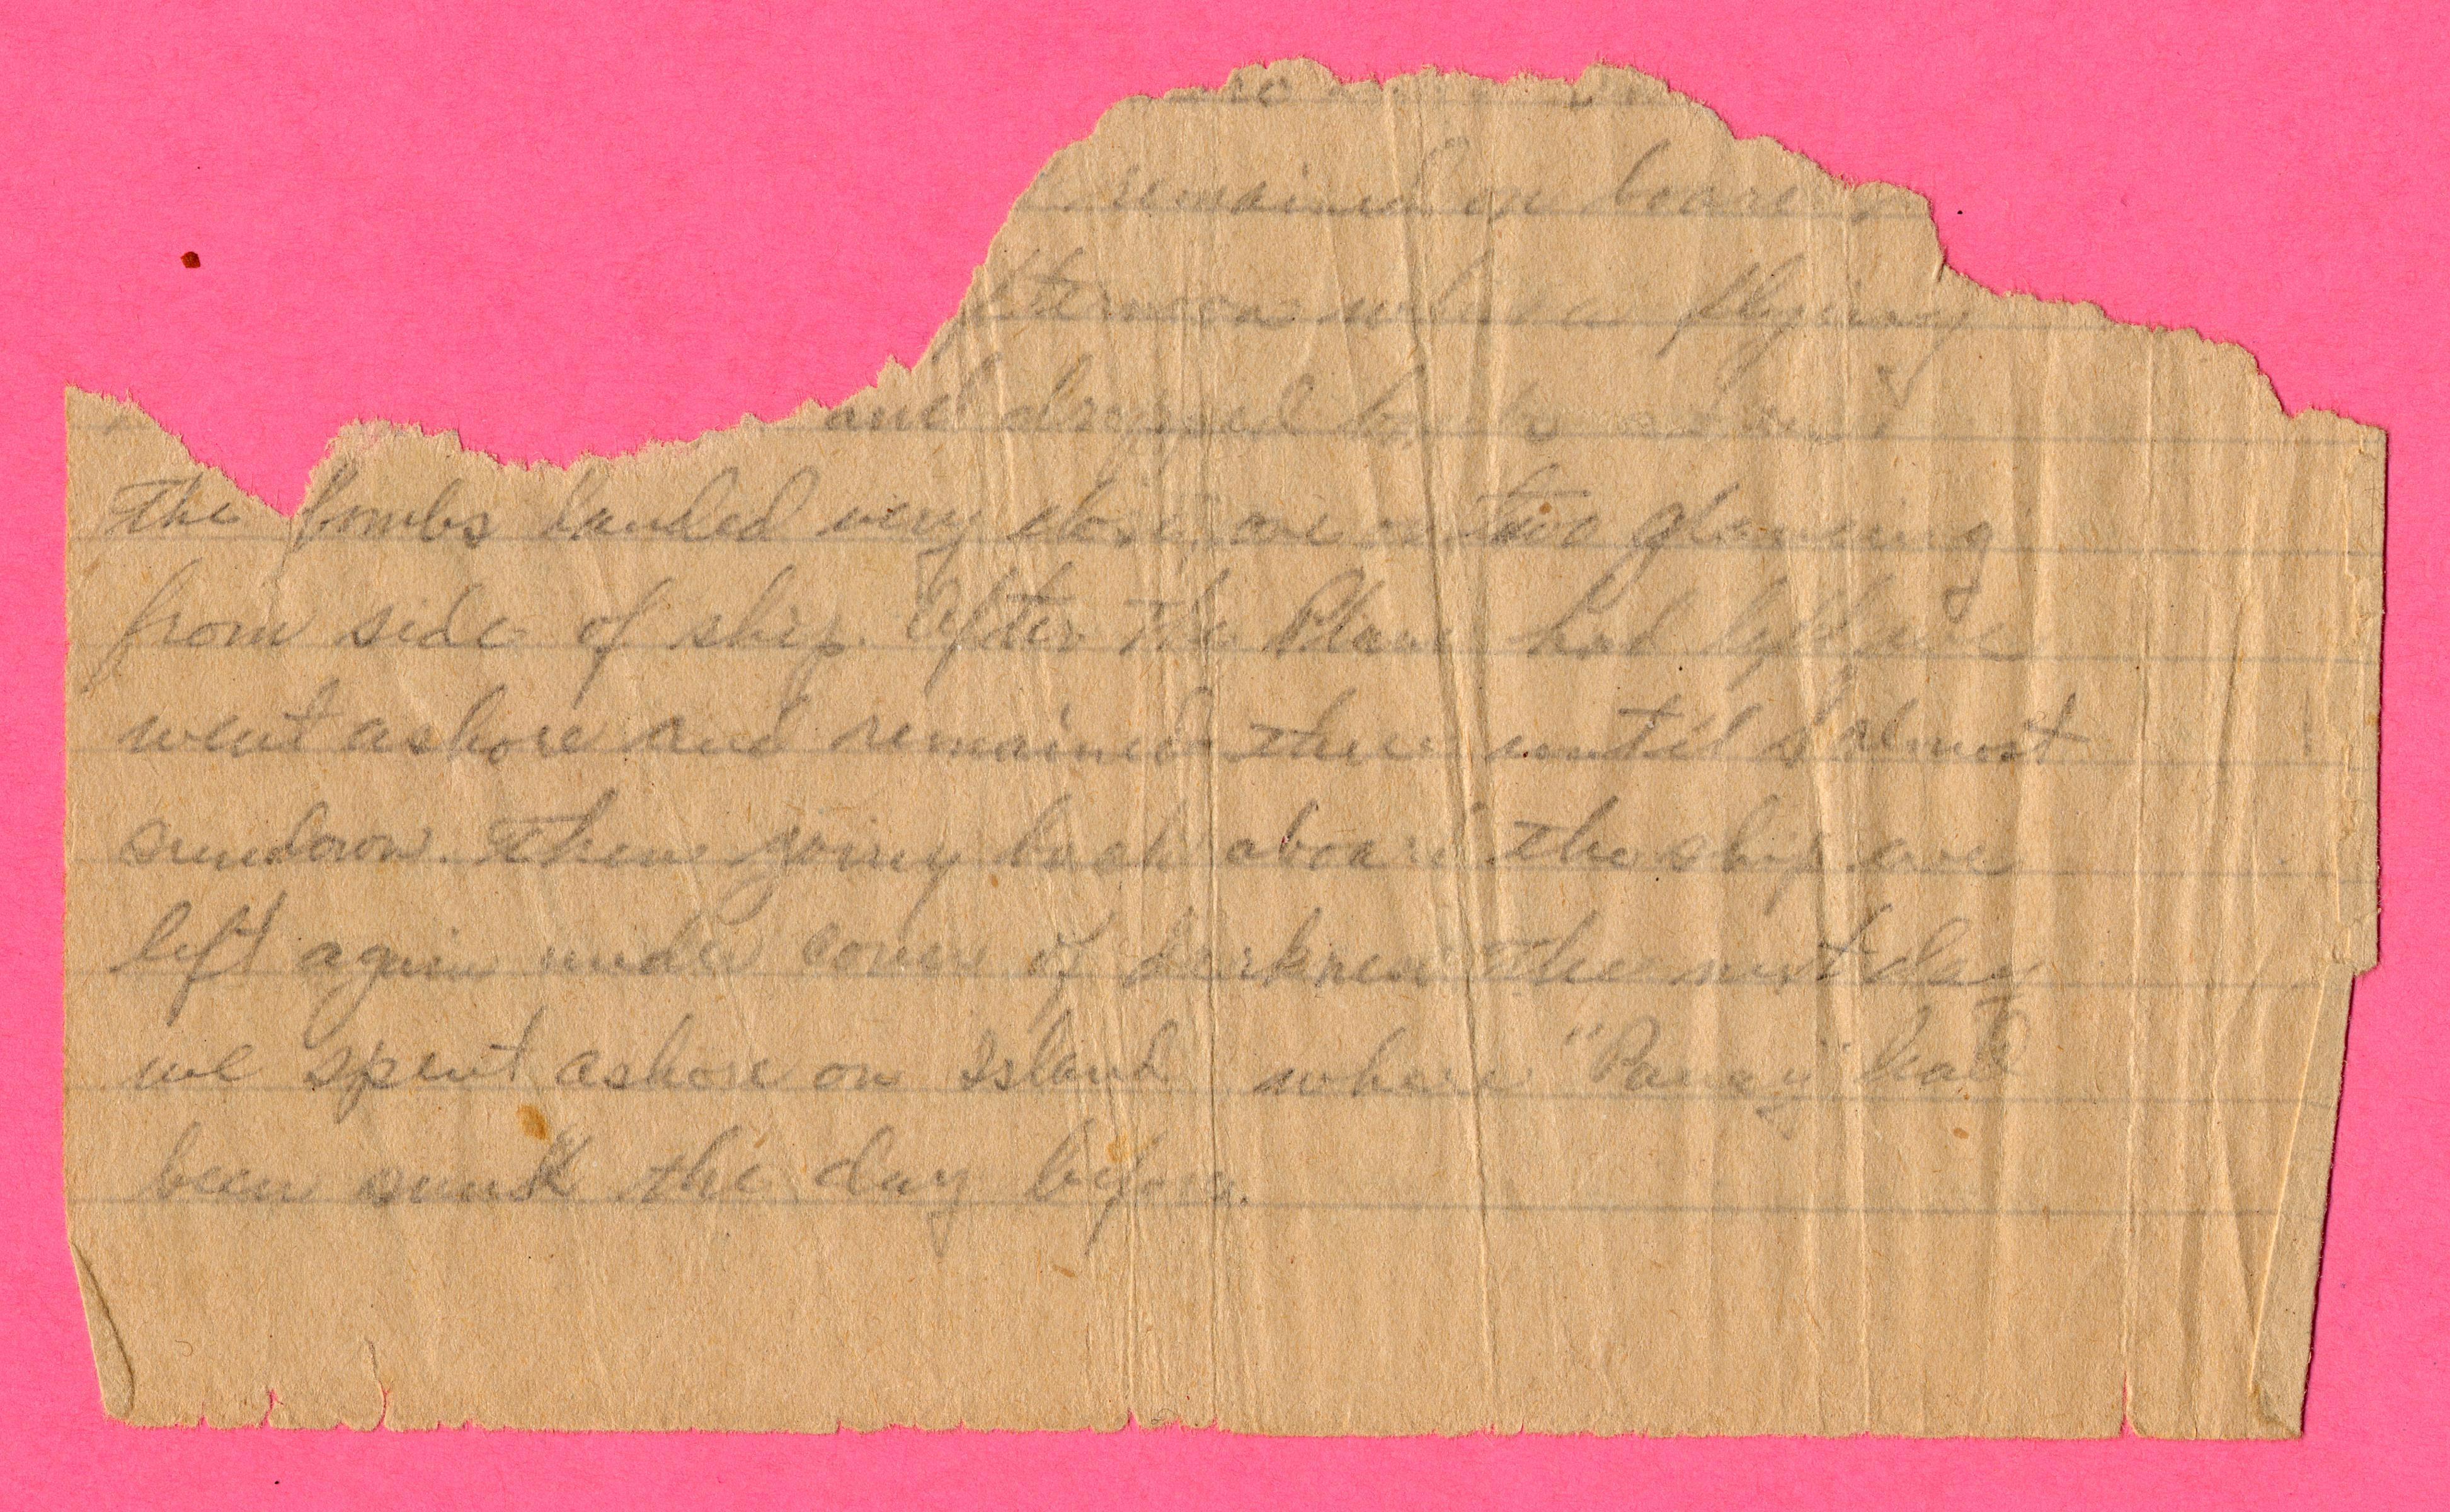 remained on board
fternoon when a flying
and dropped
the bombs landed very close one or two glancing
from side of ship. After the Plane had left we
went ashore and remained there until almost
sundown. Then going back aboard the ship we
left again under cover of darkness the next day
we spent ashore on Island where "Panay" had
been sunk the day before.